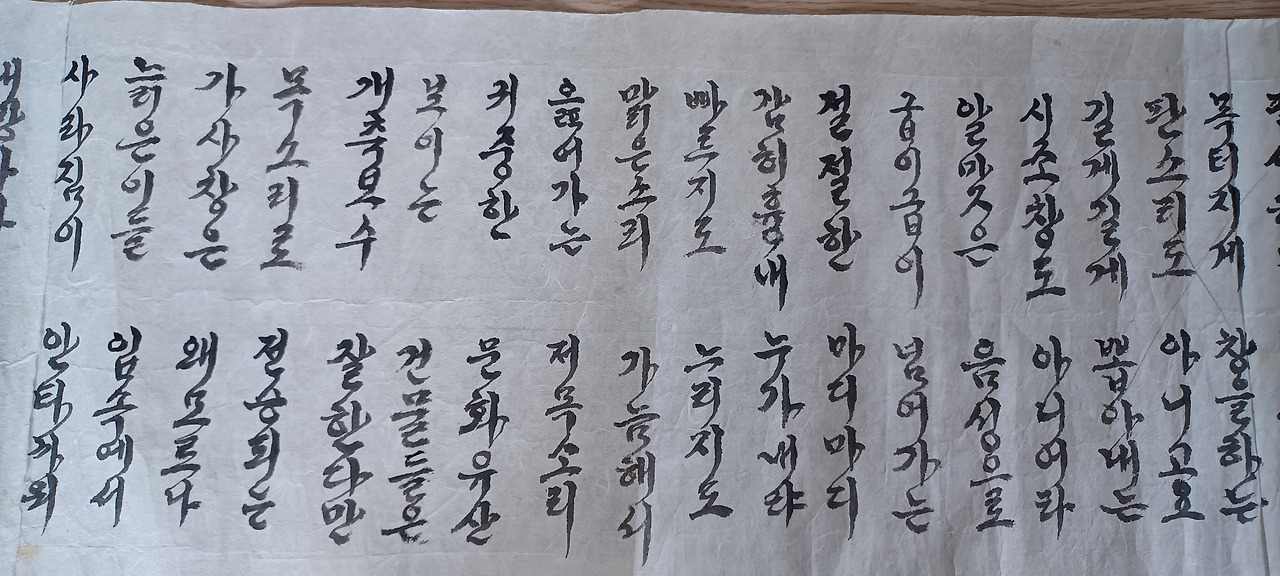 목터지게 창을하는
판소리도 아니고요
길게길게 뽑아내는
시조창도 아니어라
알맞은 음성으로
굽이굽이 넘어가는
절절한 마디마디
감히흉내 누가내랴
빠르지도 느리지도
맑은소리 가늠해서
읊어가는 저목소리
귀중한 문화유산
보이는 건물들은
개축보수 잘한다만
목소리로 전승되는
가사창은 왜모르나
늙은이들 입속에서
사라짐이 안타까워